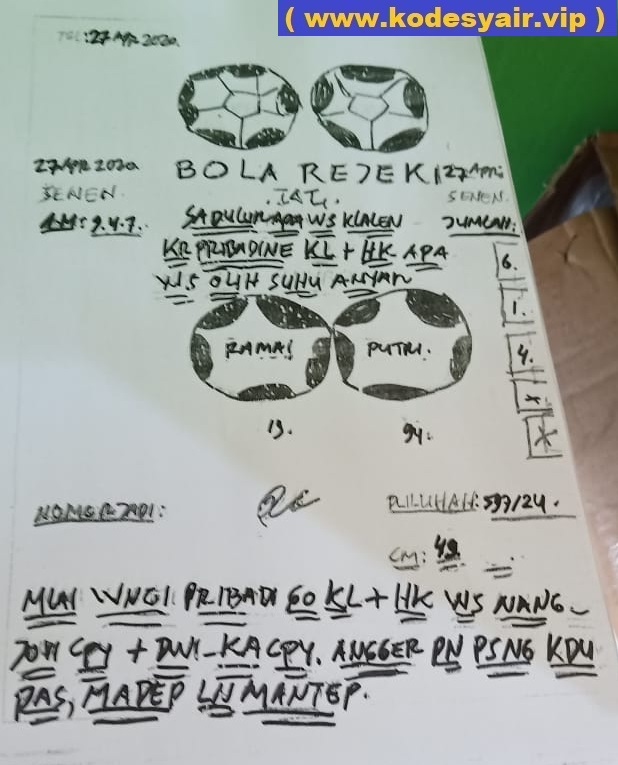 ( www.kodesyair.vip )
TGL: 27 APR 2020
27 APR 2020 BOLA REJEKI 27 APRI
SENEN. JATI. SENEN.
AM: 9.4.7. SADULUR APA WS KLALEN JUMLAH:
KR PRIBADINE KL + HK APA
WS OLIH SUHU ANYAR
6.
1.
4.
X
X
RAMAI PUTRI.
19. 94.
NOMER JADI: PULUHAN: 597/24.
CM: 49
MLAI WNGI PRIBADI GO KL + HK WS NANG
CPY + DWI-KA CPY. ANGGER PN PSNG KDU
PAS, MADEP LN MANTEP.